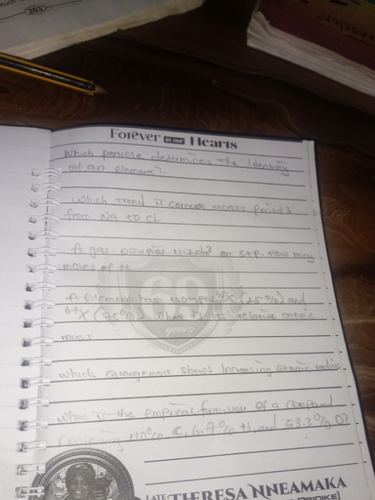 263
Forever IN OUR Hearts
Which particle determines the Identity
of an element?
Which trend is correct across period 3
from Na to Cl
A gas occupies 11.2dm³ at s.t.p. How many
moles of
A Element has isotopes X (25%) and
X What is its relative atomic
mass?
60
years
Which arrangement shows Increasing atomic radius
What is the empirical formula of a compound
containing 40% C, 6.7% H, and 53.3% O?
LATE THERESA NNEAMAKA